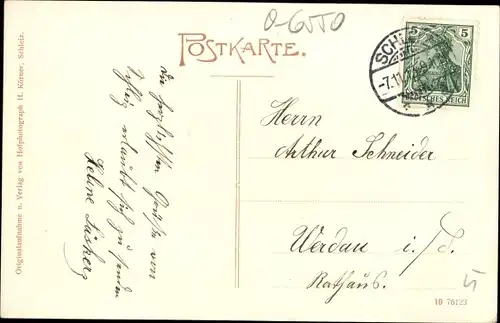 0-6550
POSTKARTE.
5 5
DEUTSCHES REICH
SCHLEIZ
-7.11.
Die herzlichsten Grüße von
Schleiz erlaubt sich zu senden
Herrn
Arthur Schneider
Werdau i./S.
Rathaus.
Originalaufnahme u. Verlag von Hofphotograph H. Körner, Schleiz.
10 76123